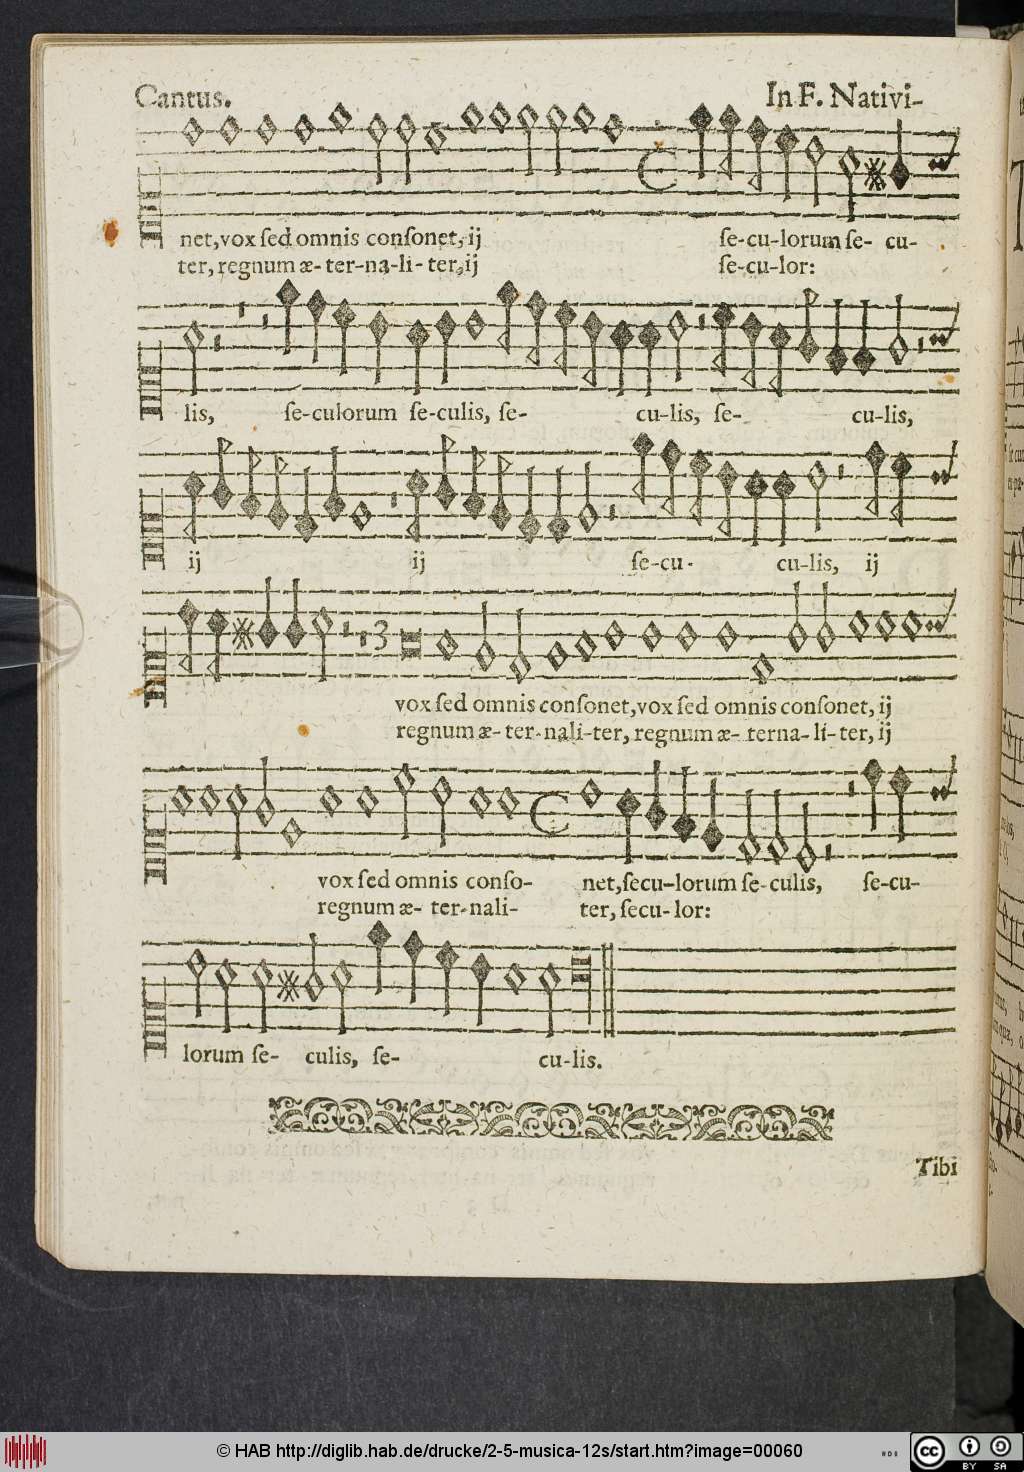 Cantus.
In F. Nativi-
net, vox ſed omnis conſonet, ij ſe-cu-lorum ſe- cu-
ter, regnum æ-ter-na-li-ter, ij ſe-cu-lor:
lis, ſe-culorum ſe-culis, ſe- cu-lis, ſe- cu-lis,
ij ij ſe-cu- cu-lis, ij
3
vox ſed omnis conſonet, vox ſed omnis conſonet, ij
regnum æ- ter-nali-ter, regnum æ- terna-li-ter, ij
vox ſed omnis conſo- net, ſecu-lorum ſe-culis, ſe-cu-
regnum æ- ter-nali- ter, ſecu-lor:
lorum ſe- culis, ſe- cu-lis.
Tibi
© HAB http://diglib.hab.de/drucke/2-5-musica-12s/start.htm?image=00060
cc BY SA